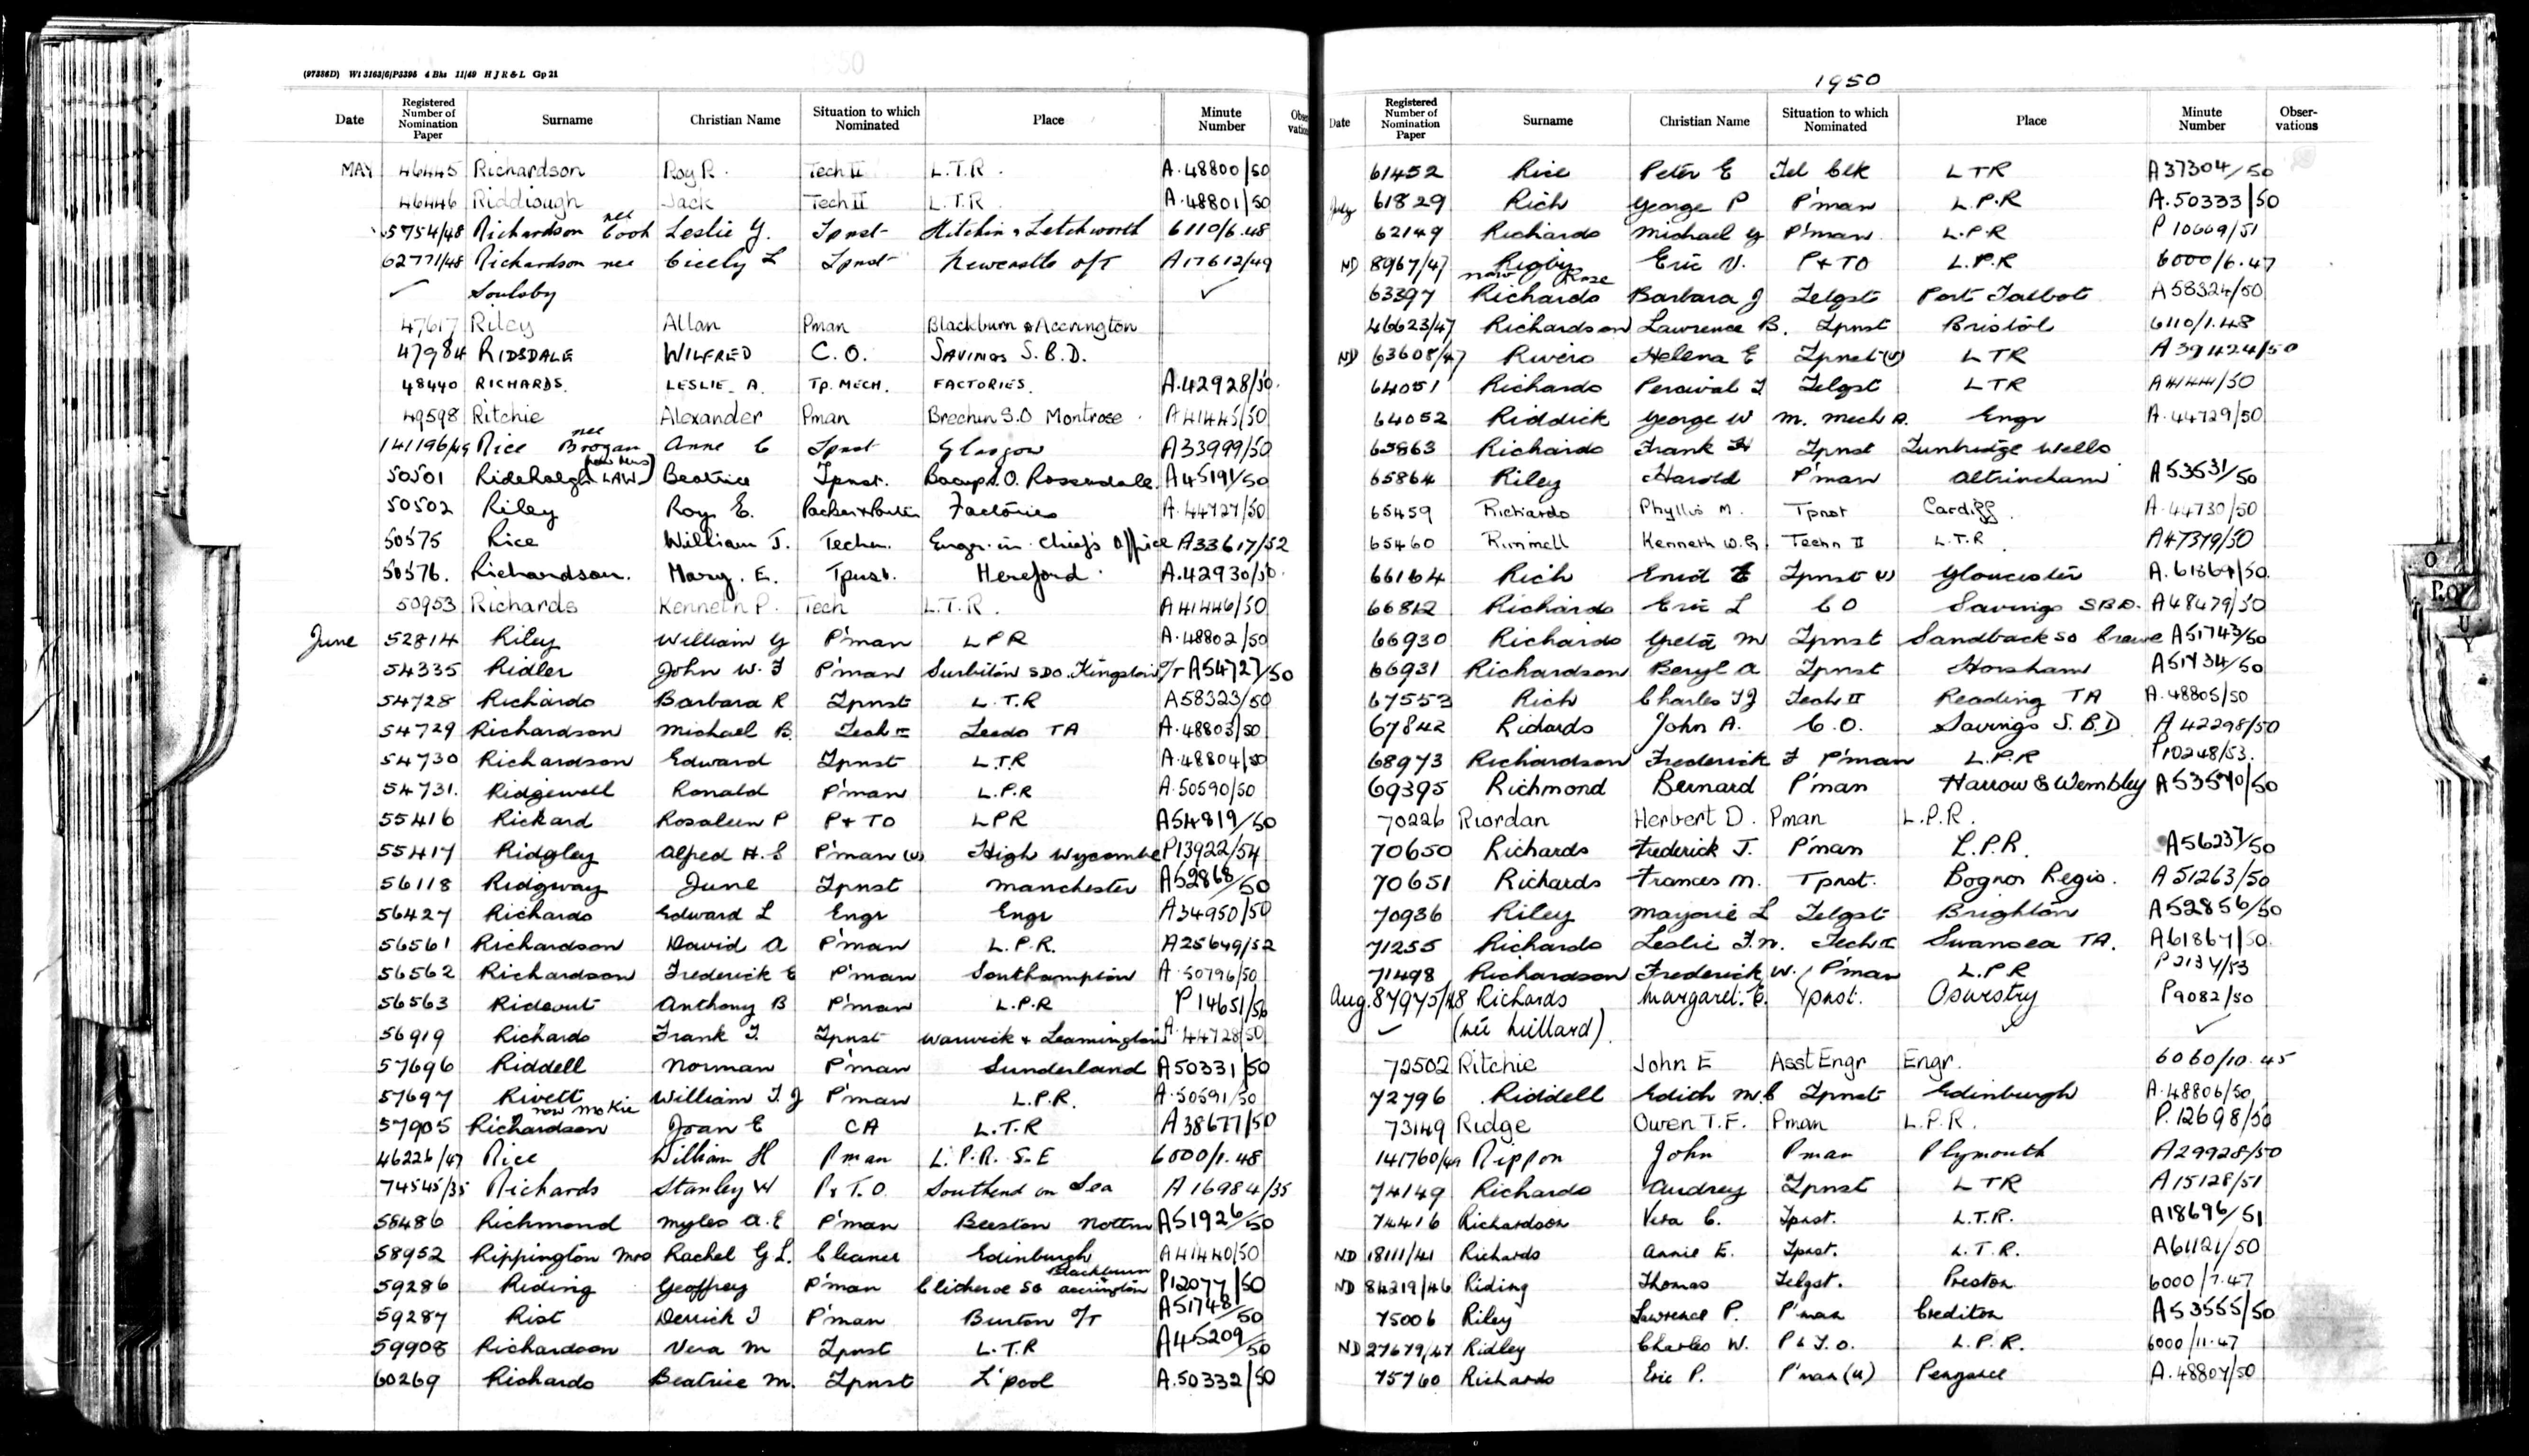 (97386D) Wt 3163/6/P3395 4 Bks 11/49 H J R & L Gp 21
Date Registered Number of Nomination Paper Surname Christian Name Situation to which Nominated Place Minute Number Obser- vations
MAY 46445 Richardson Roy R. Tech II L.T.R. A.48800/50
46446 Riddiough Jack Tech II L.T.R. A.48801/50
5754/48 Richardson nee Cook Leslie Y. Tpnst Hitchin & Letchworth 6110/6.48
62771/48 Richardson nee Cicely L Tpnst Newcastle o/T A17612/49
✓ Soulsby ✓
47617 Riley Allan Pman Blackburn & Accrington
47984 RIDSDALE WILFRED C.O. SAVINGS S.B.D.
48440 RICHARDS. LESLIE A. TP. MECH. FACTORIES. A.42928/50.
49598 Ritchie Alexander Pman Brechin S.O Montrose A41445/50
141196/49 Rice nee Brogan Anne C Tpnst Glasgow A33999/50
50501 Ridehalgh (now Mrs LAW) Beatrice Tpnst. Bacup S.O. Rossendale A45191/50
50502 Riley Roy E. Packer & Porter Factories A.44727/50
50575 Rice William J. Techn. Engr. in Chief's Office A33617/52
50576. Richardson. Mary. E. Tpnst. Hereford A.42930/50.
50953 Richards Kenneth P. Tech L.T.R. A41446/50
June 52814 Riley William G P'man LPR A.48802/50
54335 Ridler John W. F P'man Surbiton SDO. Kingston o/T A54727/50
54728 Richards Barbara R Tpnst L.T.R A58323/50
54729 Richardson Michael B. Tech II Leeds TA A.48803/50
54730 Richardson Edward Tpnst L.T.R A.48804/50
54731. Ridgewell Ronald P'man L.P.R A.50590/50
55416 Rickard Rosaleen P P & TO LPR A54819/50
55417 Ridgley Alfred H. S P'man (u) High Wycombe P13922/54
56118 Ridgway June Tpnst Manchester A52868/50
56427 Richards Edward L Engr Engr A34950/50
56561 Richardson David A P'man L.P.R. A25649/52
56562 Richardson Frederick C P'man Southampton A.50796/50
56563 Rideout Anthony B P'man L.P.R P14651/50
56919 Richards Frank T. Tpnst Warwick & Leamington A.44728/50
57696 Riddell Norman P'man Sunderland A50331/50
57697 Rivett William T. J P'man L.P.R. A.50591/50
57905 Richardson now McKie Joan E CA L.T.R A38677/50
46226/47 Rice William H Pman L.P.R. S.E 6000/1.48
74545/35 Richards Stanley W P & T.O. Southend on Sea A16984/35
58486 Richmond Myles A. E P'man Beeston Nottm A51926/50
58952 Rippington Mrs Rachel G L. Cleaner Edinburgh A41440/50
59286 Riding Geoffrey P'man Clitheroe SO Blackburn Accrington P12077/50
59287 Rist Derrick J P'man Burton o/T A51748/50
59908 Richardson Vera M Tpnst L.T.R A45209/50
60269 Richards Beatrice M. Tpnst L'pool A.50332/50
1950
Date Registered Number of Nomination Paper Surname Christian Name Situation to which Nominated Place Minute Number Obser- vations
61452 Rice Peter E Tel Clk LTR A37304/50
July 61829 Rich George P P'man L.P.R A.50333/50
62149 Richards Michael G P'man L.P.R P10669/51
ND 8967/47 Rigby Eric V. P & TO L.P.R 6000/6.47
63397 Richards now Rose Barbara J Telgst Port Talbot A58324/50
46623/47 Richardson Lawrence B. Tpnst Bristol 6110/1.48
ND 63608/47 Rivers Helena E Tpnst (u) LTR A39424/50
64051 Richards Percival J Telgst LTR A41441/50
64052 Riddick George W M. Mech A. Engr A.44729/50
65863 Richards Frank H Tpnst Tunbridge Wells
65864 Riley Harold P'man Altrincham A53531/50
65459 Richards Phyllis M. Tpnst Cardiff. A.44730/50
65460 Rimmell Kenneth W.G. Techn II L.T.R A47379/50
66164 Rich Enid E Tpnst (u) Gloucester A.61869/50.
66812 Richards Eric L CO Savings SBD. A48479/50
66930 Richards Greta M Tpnst Sandback SO Crewe A51743/50
66931 Richardson Beryl A Tpnst Horsham A51734/50
67553 Rich Charles T J Tech II Reading TA A.48805/50
67842 Richards John A. C.O. Savings S.B.D A42298/50
68973 Richardson Frederick F P'man L.P.R P10248/53.
69395 Richmond Bernard P'man Harrow & Wembley A53570/50
70226 Riordan Herbert D. Pman L.P.R.
70650 Richards Frederick J. P'man L.P.R. A56237/50
70651 Richards Frances M. Tpnst. Bognor Regis. A51263/50
70936 Riley Marjorie L Telgst Brighton A52856/50
71255 Richards Leslie F.N. Tech II Swansea TA. A61867/50.
71498 Richardson Frederick W. P'man L.P.R P2134/53
Aug. 87975/48 Richards Margaret. E. Tpnst. Oswestry P9082/50
✓ (née Millard). ✓ ✓
72502 Ritchie John E Asst Engr Engr. 6060/10.45
72796 Riddell Edith M.C Tpnst Edinburgh A.48806/50
73149 Ridge Owen T.F. Pman L.P.R. P.12698/50
141760/49 Rippon John Pman Plymouth A29928/50
74149 Richards Audrey Tpnst LTR A15128/51
74416 Richardson Vera C. Tpnst. L.T.R. A18696/51
ND 18111/41 Richards Annie E. Tpnst. L.T.R. A61121/50
ND 84219/46 Riding Thomas Telgst. Preston 6000/7.47
75006 Riley Lawrence P. P'man Crediton A53555/50
ND 27679/47 Ridley Charles W. P & T.O. L.P.R. 6000/11.47
75760 Richards Eric P. P'man (u) Pengance A.48807/50